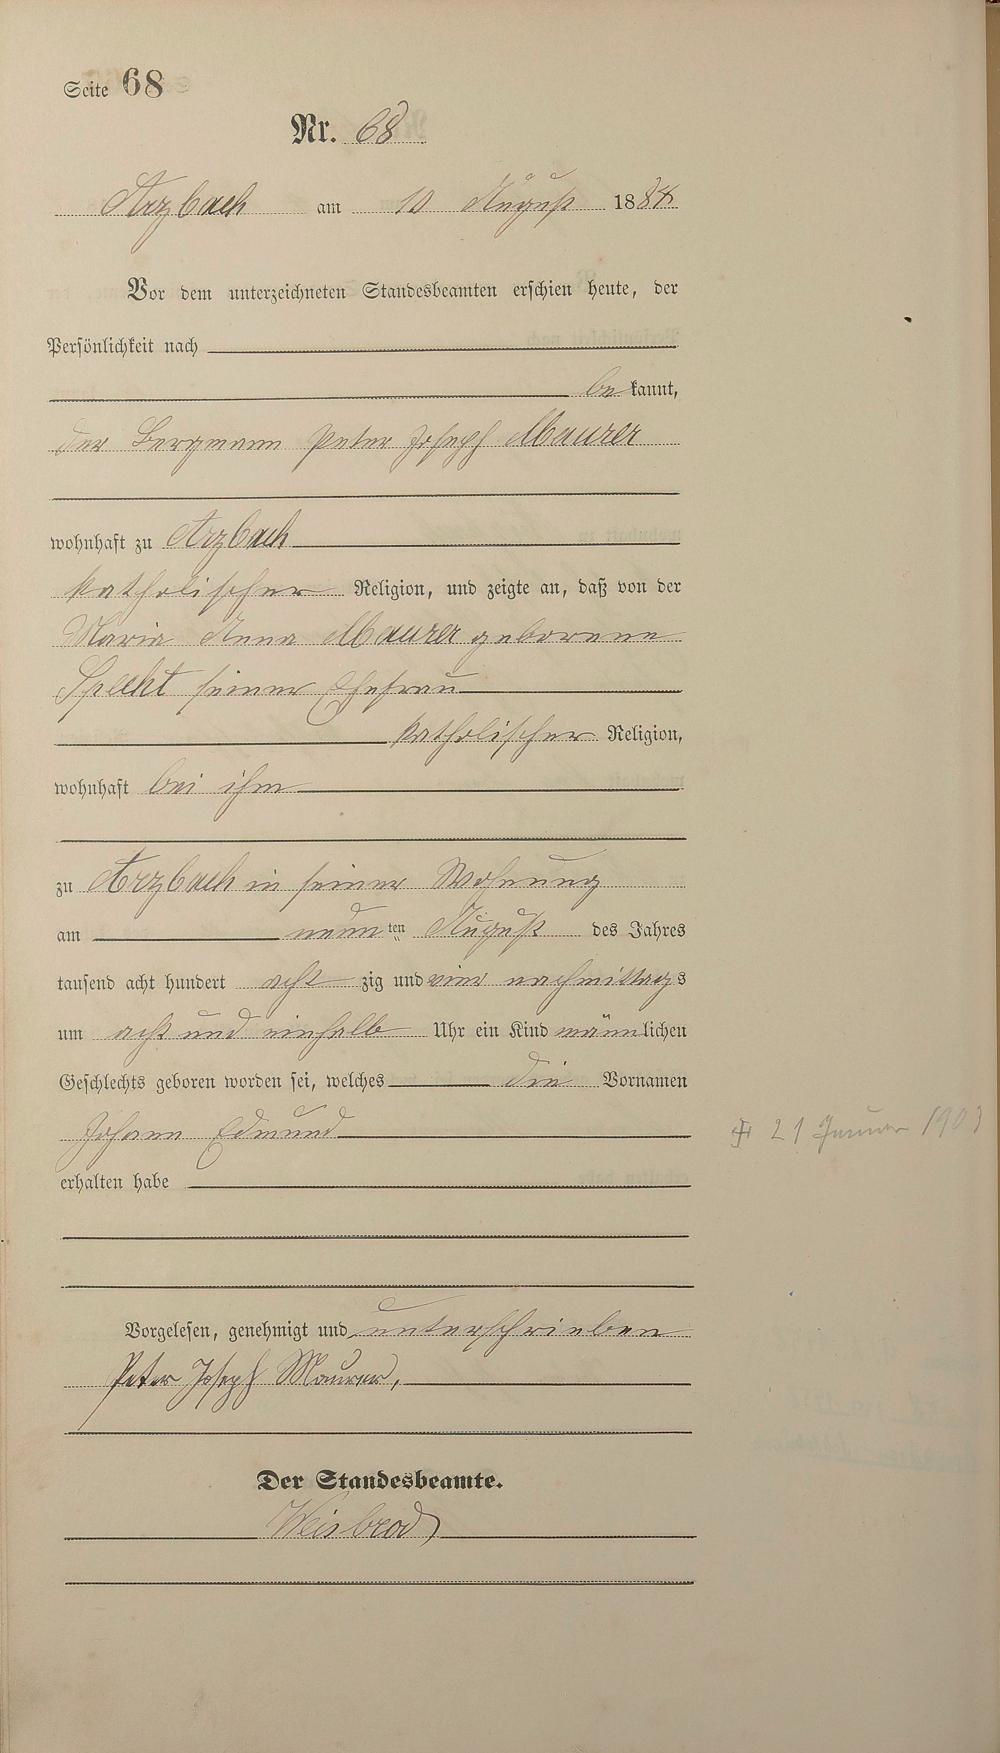 Seite 68
Nr. 68
Arzbach am 10 August 1884
Vor dem unterzeichneten Standesbeamten erschien heute, der
Persönlichkeit nach
bekannt,
der Bergmann Peter Joseph Maurer
wohnhaft zu Arzbach
katholischer Religion, und zeigte an, daß von der
Maria Anna Maurer geborene
Specht seiner Ehefrau
katholischer Religion,
wohnhaft bei ihm
zu Arzbach in seiner Wohnung
am neunten August des Jahres
tausend acht hundert achtzig und vier nachmittags
um acht und einhalb Uhr ein Kind männlichen
Geschlechts geboren worden sei, welches die Vornamen
Johann Edmund
erhalten habe
+ 21 Januar 1903
Vorgelesen, genehmigt und unterschrieben
Peter Joseph Maurer,
Der Standesbeamte.
Weisbrod